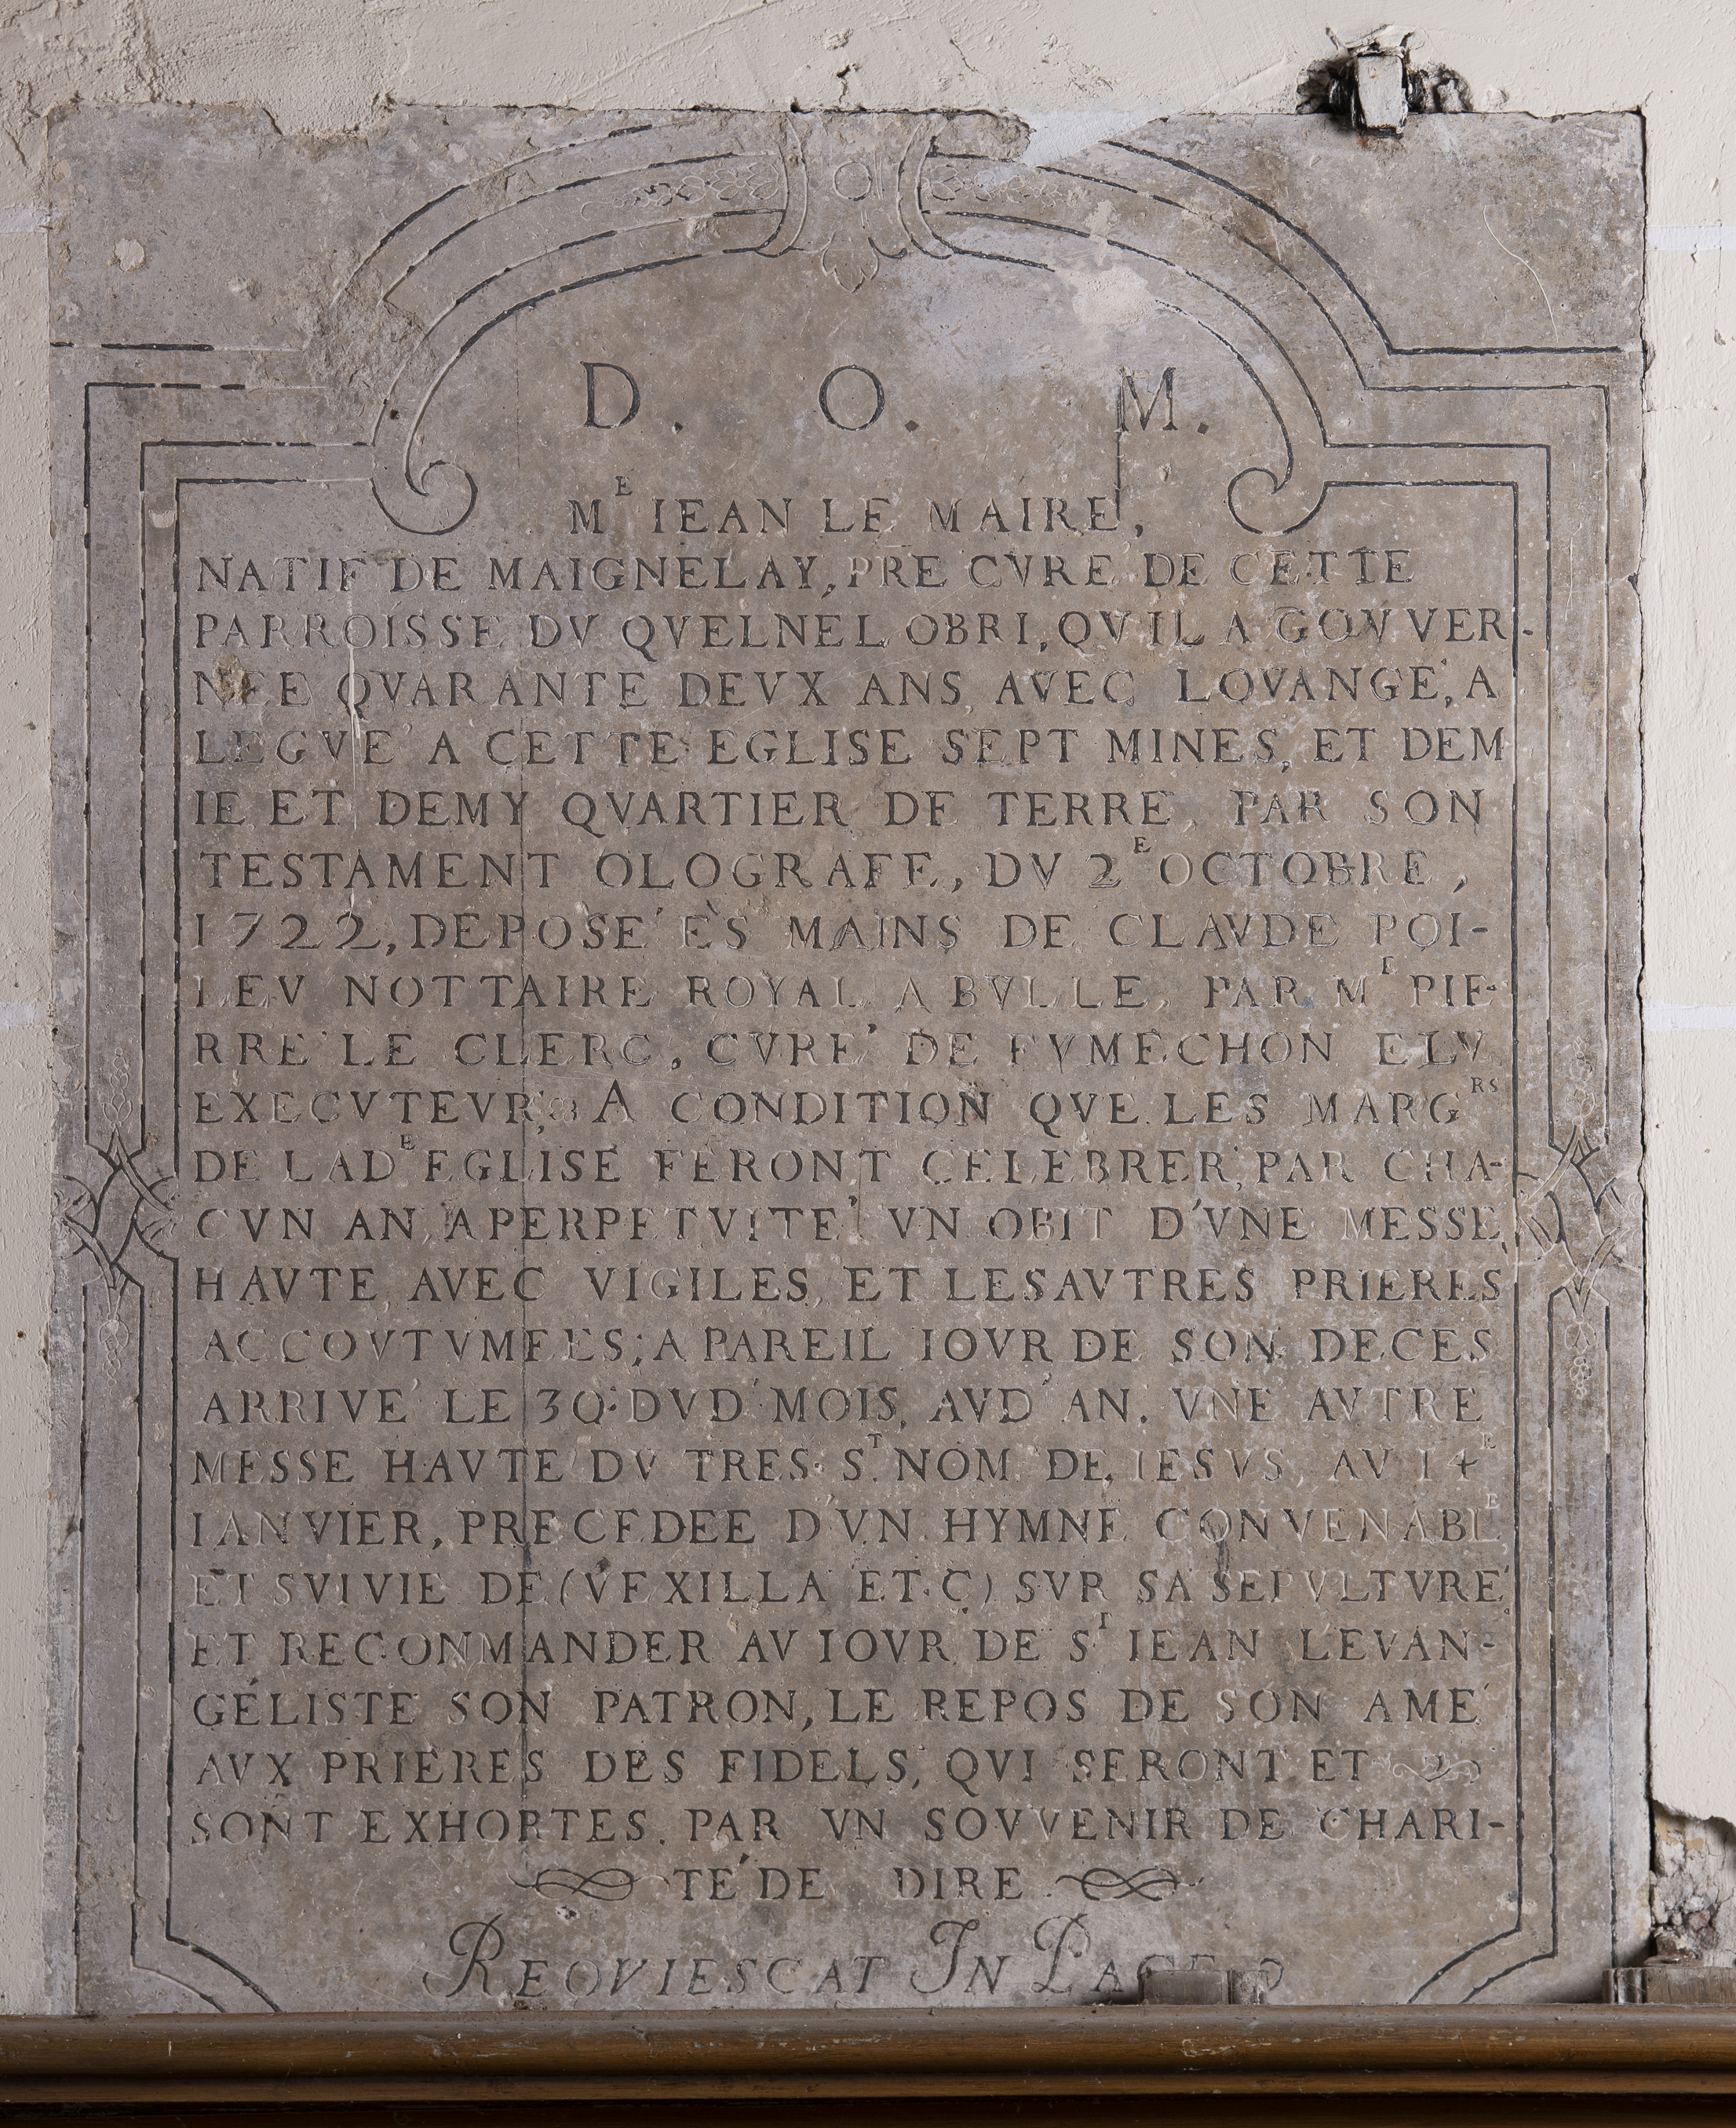 D. O. M.
M^E IEAN LE MAIRE,
NATIF DE MAIGNELAY, PRE CVRE DE CETTE
PARROISSE DV QVELNEL OBRI, QV IL A GOVVER-
NEE QVARANTE DEVX ANS, AVEC LOVANGE, A
LEGVE' A CETTE EGLISE SEPT MINES, ET DEM
IE ET DEMY QVARTIER DE TERRE, PAR SON
TESTAMENT OLOGRAFE, DV 2^E OCTOBRE,
1722, DEPOSE' ÈS MAINS DE CLAVDE POI-
LEV NOTTAIRE ROYAL A BVLLE, PAR M^E PIE-
RRE LE CLERC, CVRE' DE FVMECHON ELV
EXECVTEVR, A CONDITION QVE LES MARG^RS
DE LAD^E EGLISE FERONT CELEBRER, PAR CHA-
CVN AN, A PERPETVITE' VN OBIT D'VNE MESSE
HAVTE AVEC VIGILES, ET LES AVTRES PRIERES
ACCOVTVMEES; A PAREIL IOVR DE SON DECES
ARRIVE' LE 30. DVD' MOIS, AVD' AN. VNE AVTRE
MESSE HAVTE DV TRES S^T. NOM DE IESVS, AV 14^E
IANVIER, PRECEDEE D'VN HYMNE CONVENABLE
ET SVIVIE DE (VEXILLA ET.C) SVR SA SEPVLTVRE
ET RECONMANDER AV IOVR DE S^T IEAN LEVAN-
GÉLISTE SON PATRON, LE REPOS DE SON AME
AVX PRIERES DES FIDELS, QVI SERONT ET
SONT EXHORTES. PAR VN SOVVENIR DE CHARI-
TE' DE DIRE
REQVIESCAT IN PACE